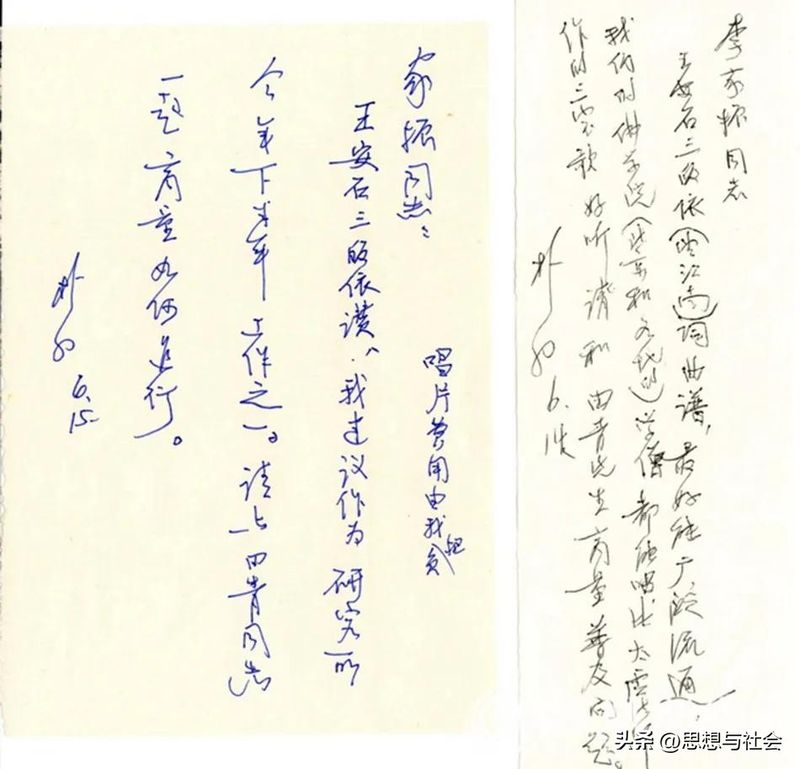 家振同志：
唱片费用由我负担
王安石三皈依讚，我建议作为研究所
今年下半年工作之一。请与田青同志
一起商量如何进行。
朴初
6.15
李家振同志
王安石三皈依(望江南)词曲谱，最好能广泛流通，
我们的佛学院(北京和各地的)学僧都能唱比太虚大师
作的三宝歌好听 请和田青先生商量普及问题。
朴初
头条 @思想与社会